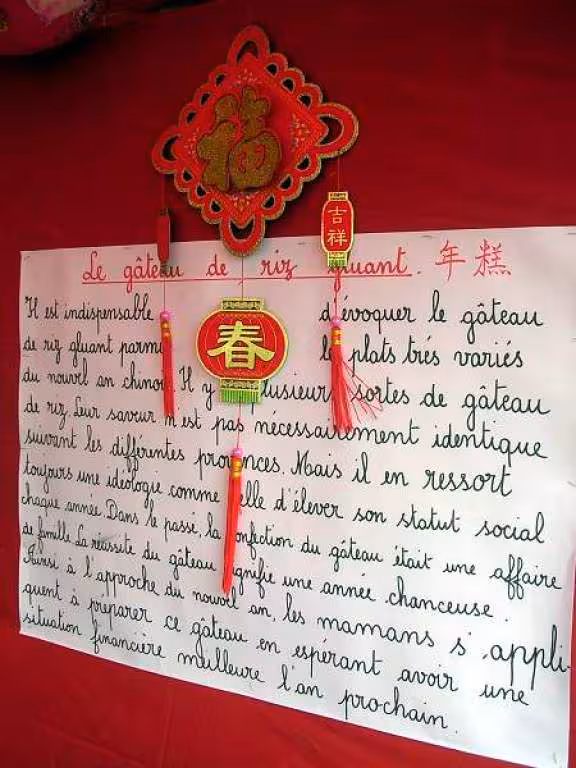 福
吉祥
春
Le gâteau de riz gluant. 年糕
Il est indispensable d'évoquer le gâteau
de riz gluant parmi plats très variés
du nouvel an chinois. Il y plusieurs sortes de gâteau
de riz. Leur saveur n'est pas nécessairement identique
suivant les différentes provinces. Mais il en ressort
toujours une idéologie comme celle d'élever son statut social
chaque année. Dans le passé, la confection du gâteau était une affaire
de famille. La réussite du gâteau signifie une année chanceuse.
Aussi à l'approche du nouvel an, les mamans s'appli-
quent à préparer ce gâteau en espérant avoir une
situation financière meilleure l'an prochain.